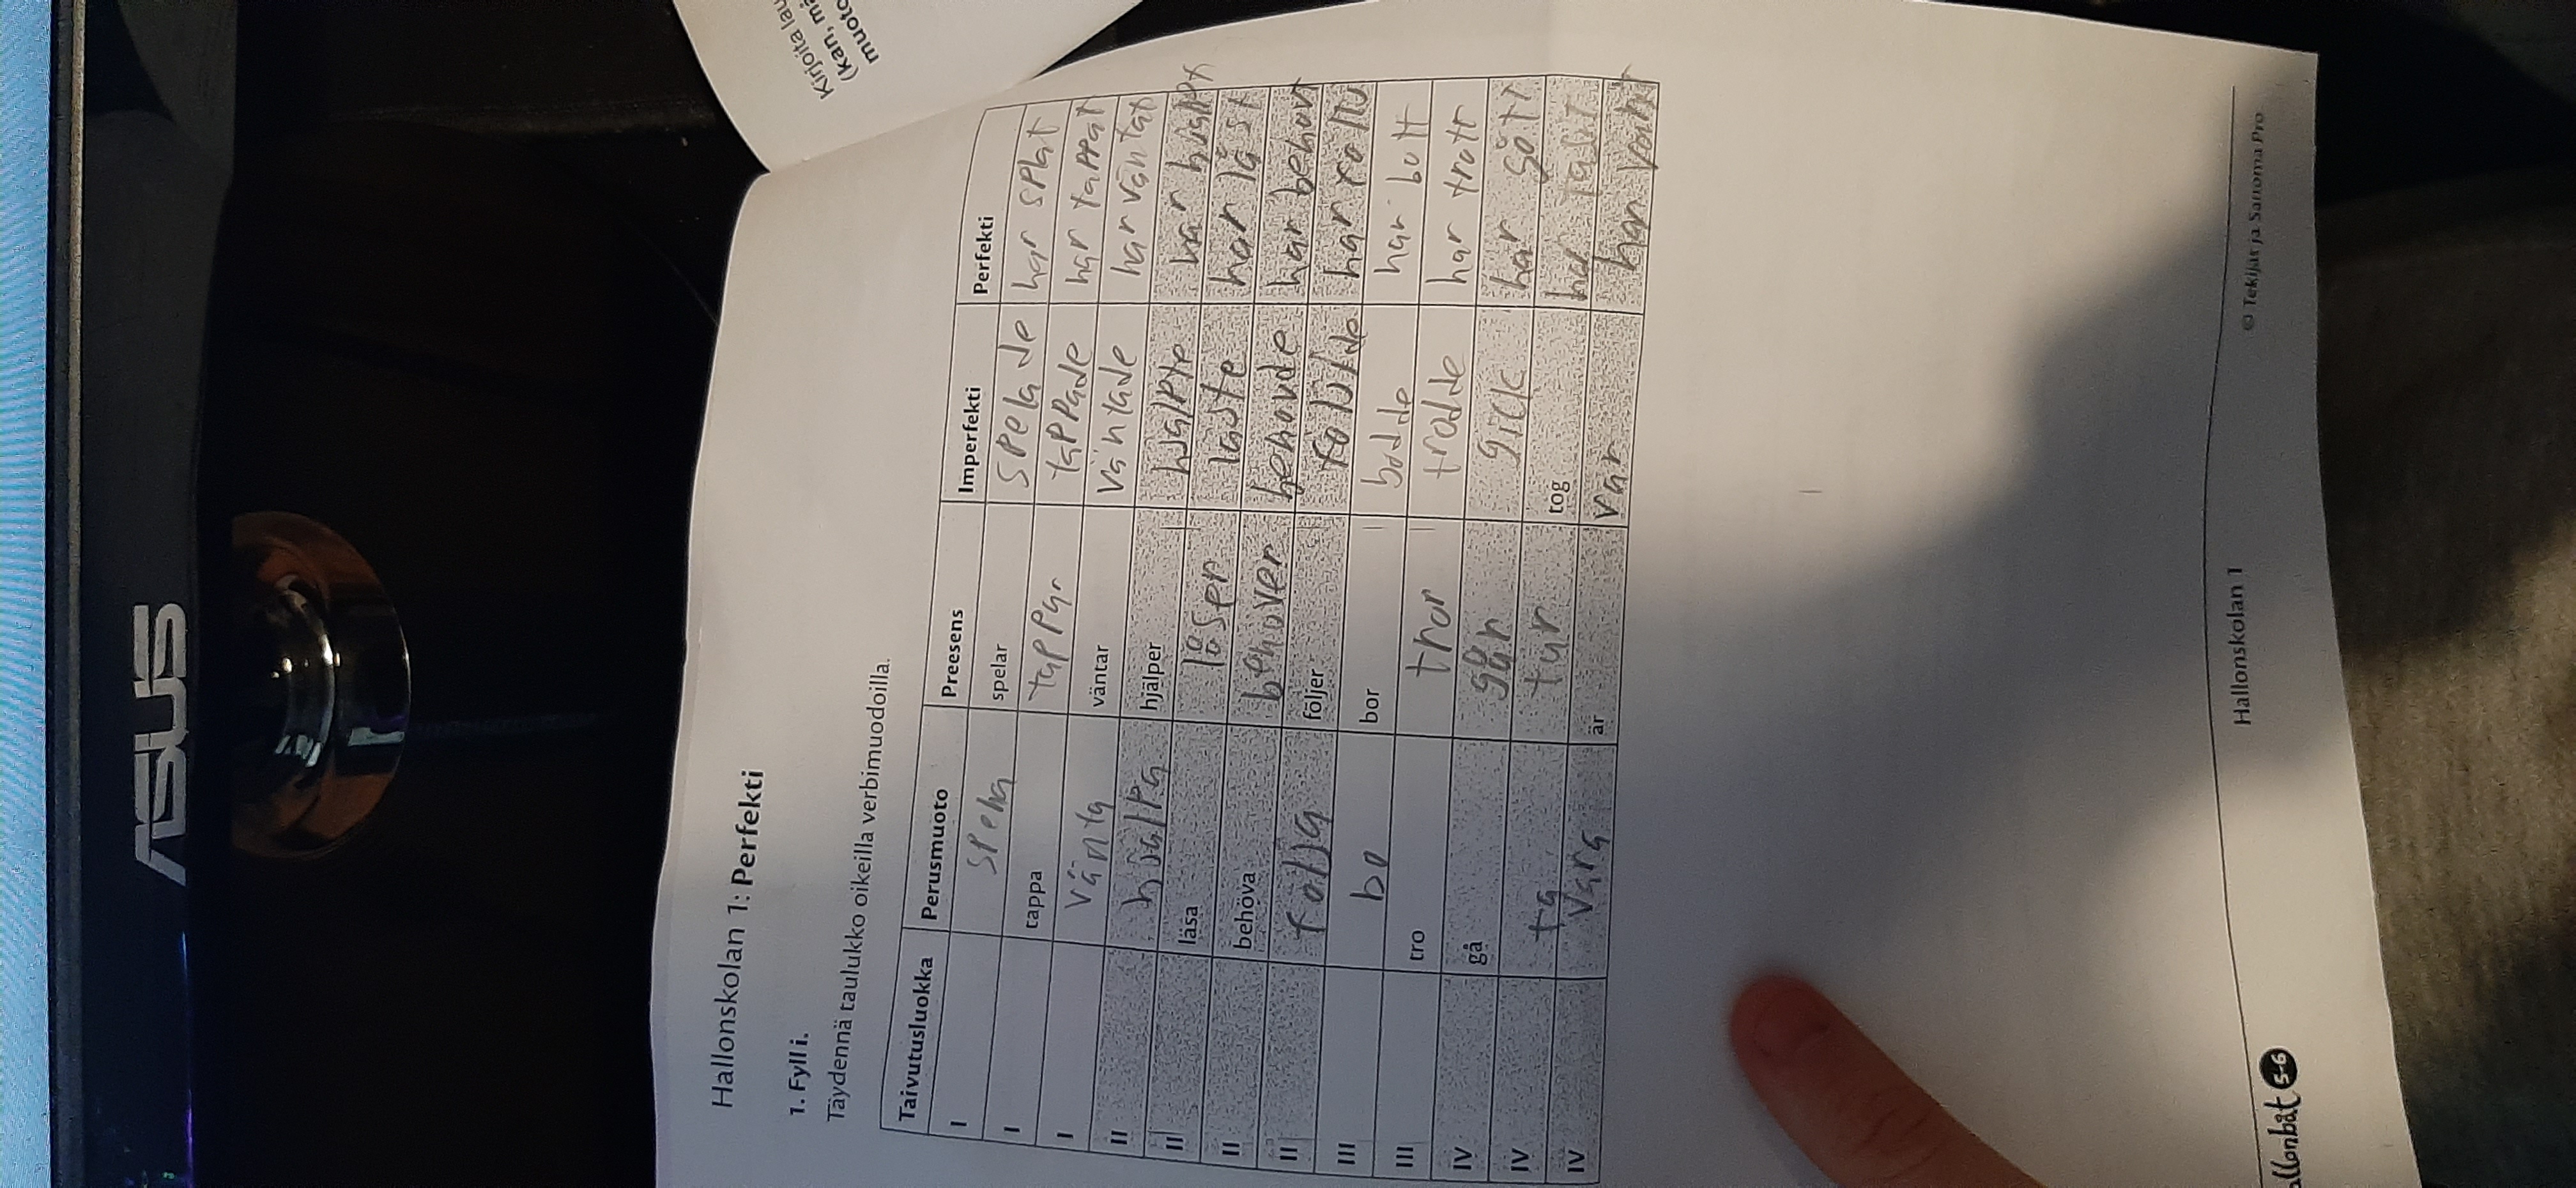 ASUS
Kirjoita lau
(kan, må
muoto
Hallonskolan 1: Perfekti
1. Fyll i.
Täydennä taulukko oikeilla verbimuodoilla.
Taivutusluokka Perusmuoto Preesens Imperfekti Perfekti
I spela spelar spelade har splat
I tappa tappar tappade har tappat
I vänta väntar väntade har väntat
II hjälpa hjälper hjälpte har hjälpt
II läsa låser låste har låst
II behöva behover behovde har behovt
II följer
III bo bor bodde har bott
III tro tror trodde har trott
IV gå går gick har gått
IV ta tar tog har
IV vara är var har
Hallonskolan 1
© Tekijät ja Sanoma Pro
allonbåt 5-6